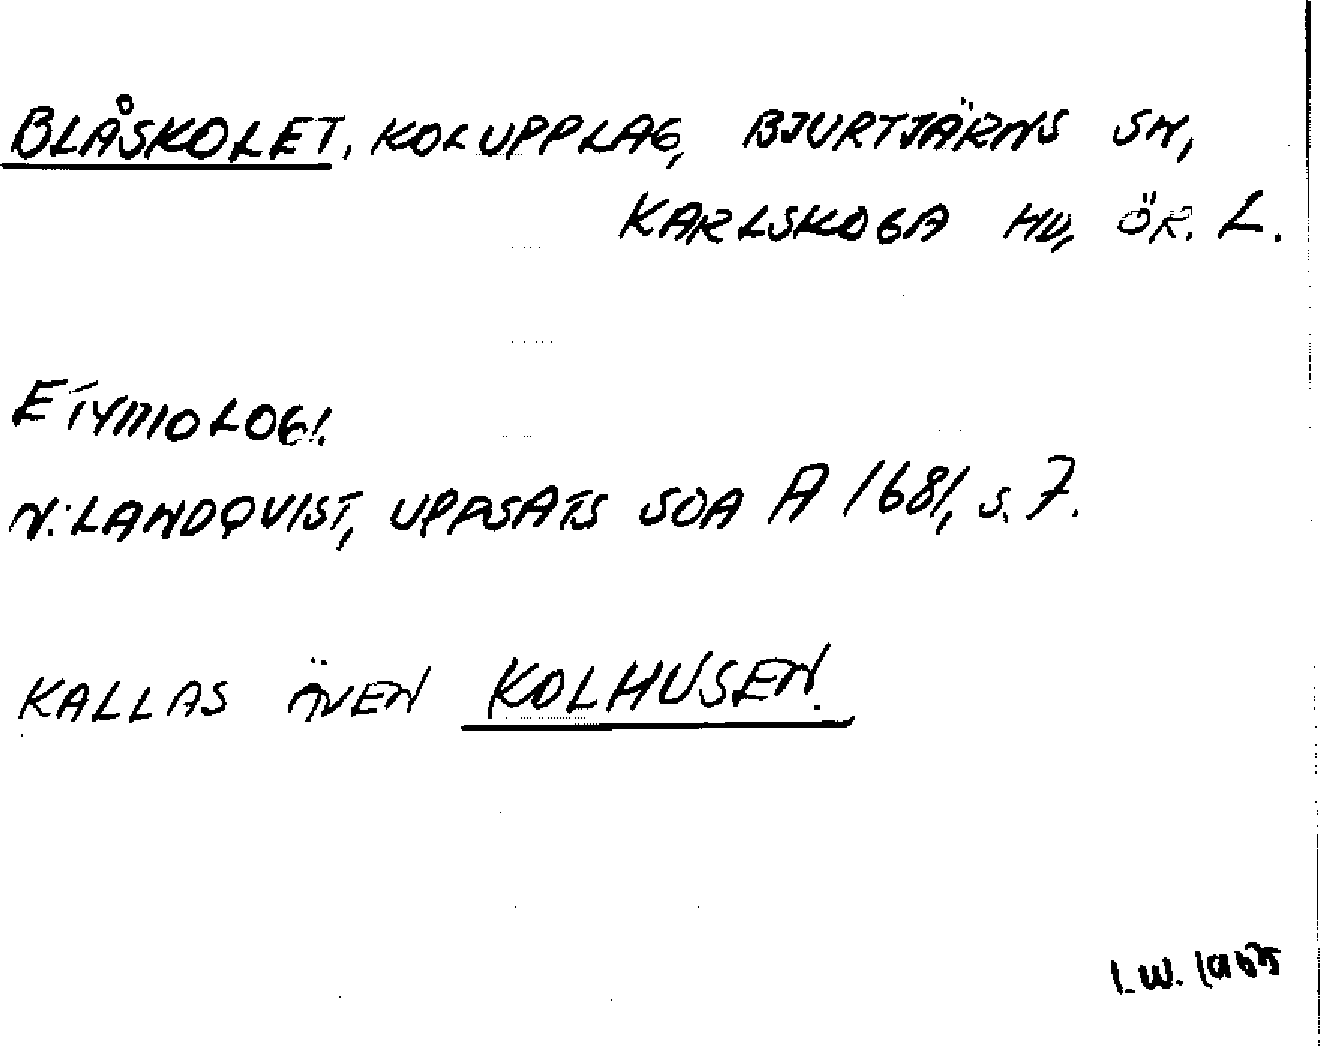 BLÅSKOLET, KOLUPPLAG, BJURTJÄRNS SN,
KARLSKOGA HD, ÖR. L.
ETYMOLOGI.
N. LANDQVIST, UPPSATS SOA A 1681, s. 7.
KALLAS ÄVEN KOLHUSEN.
I.W. 1965